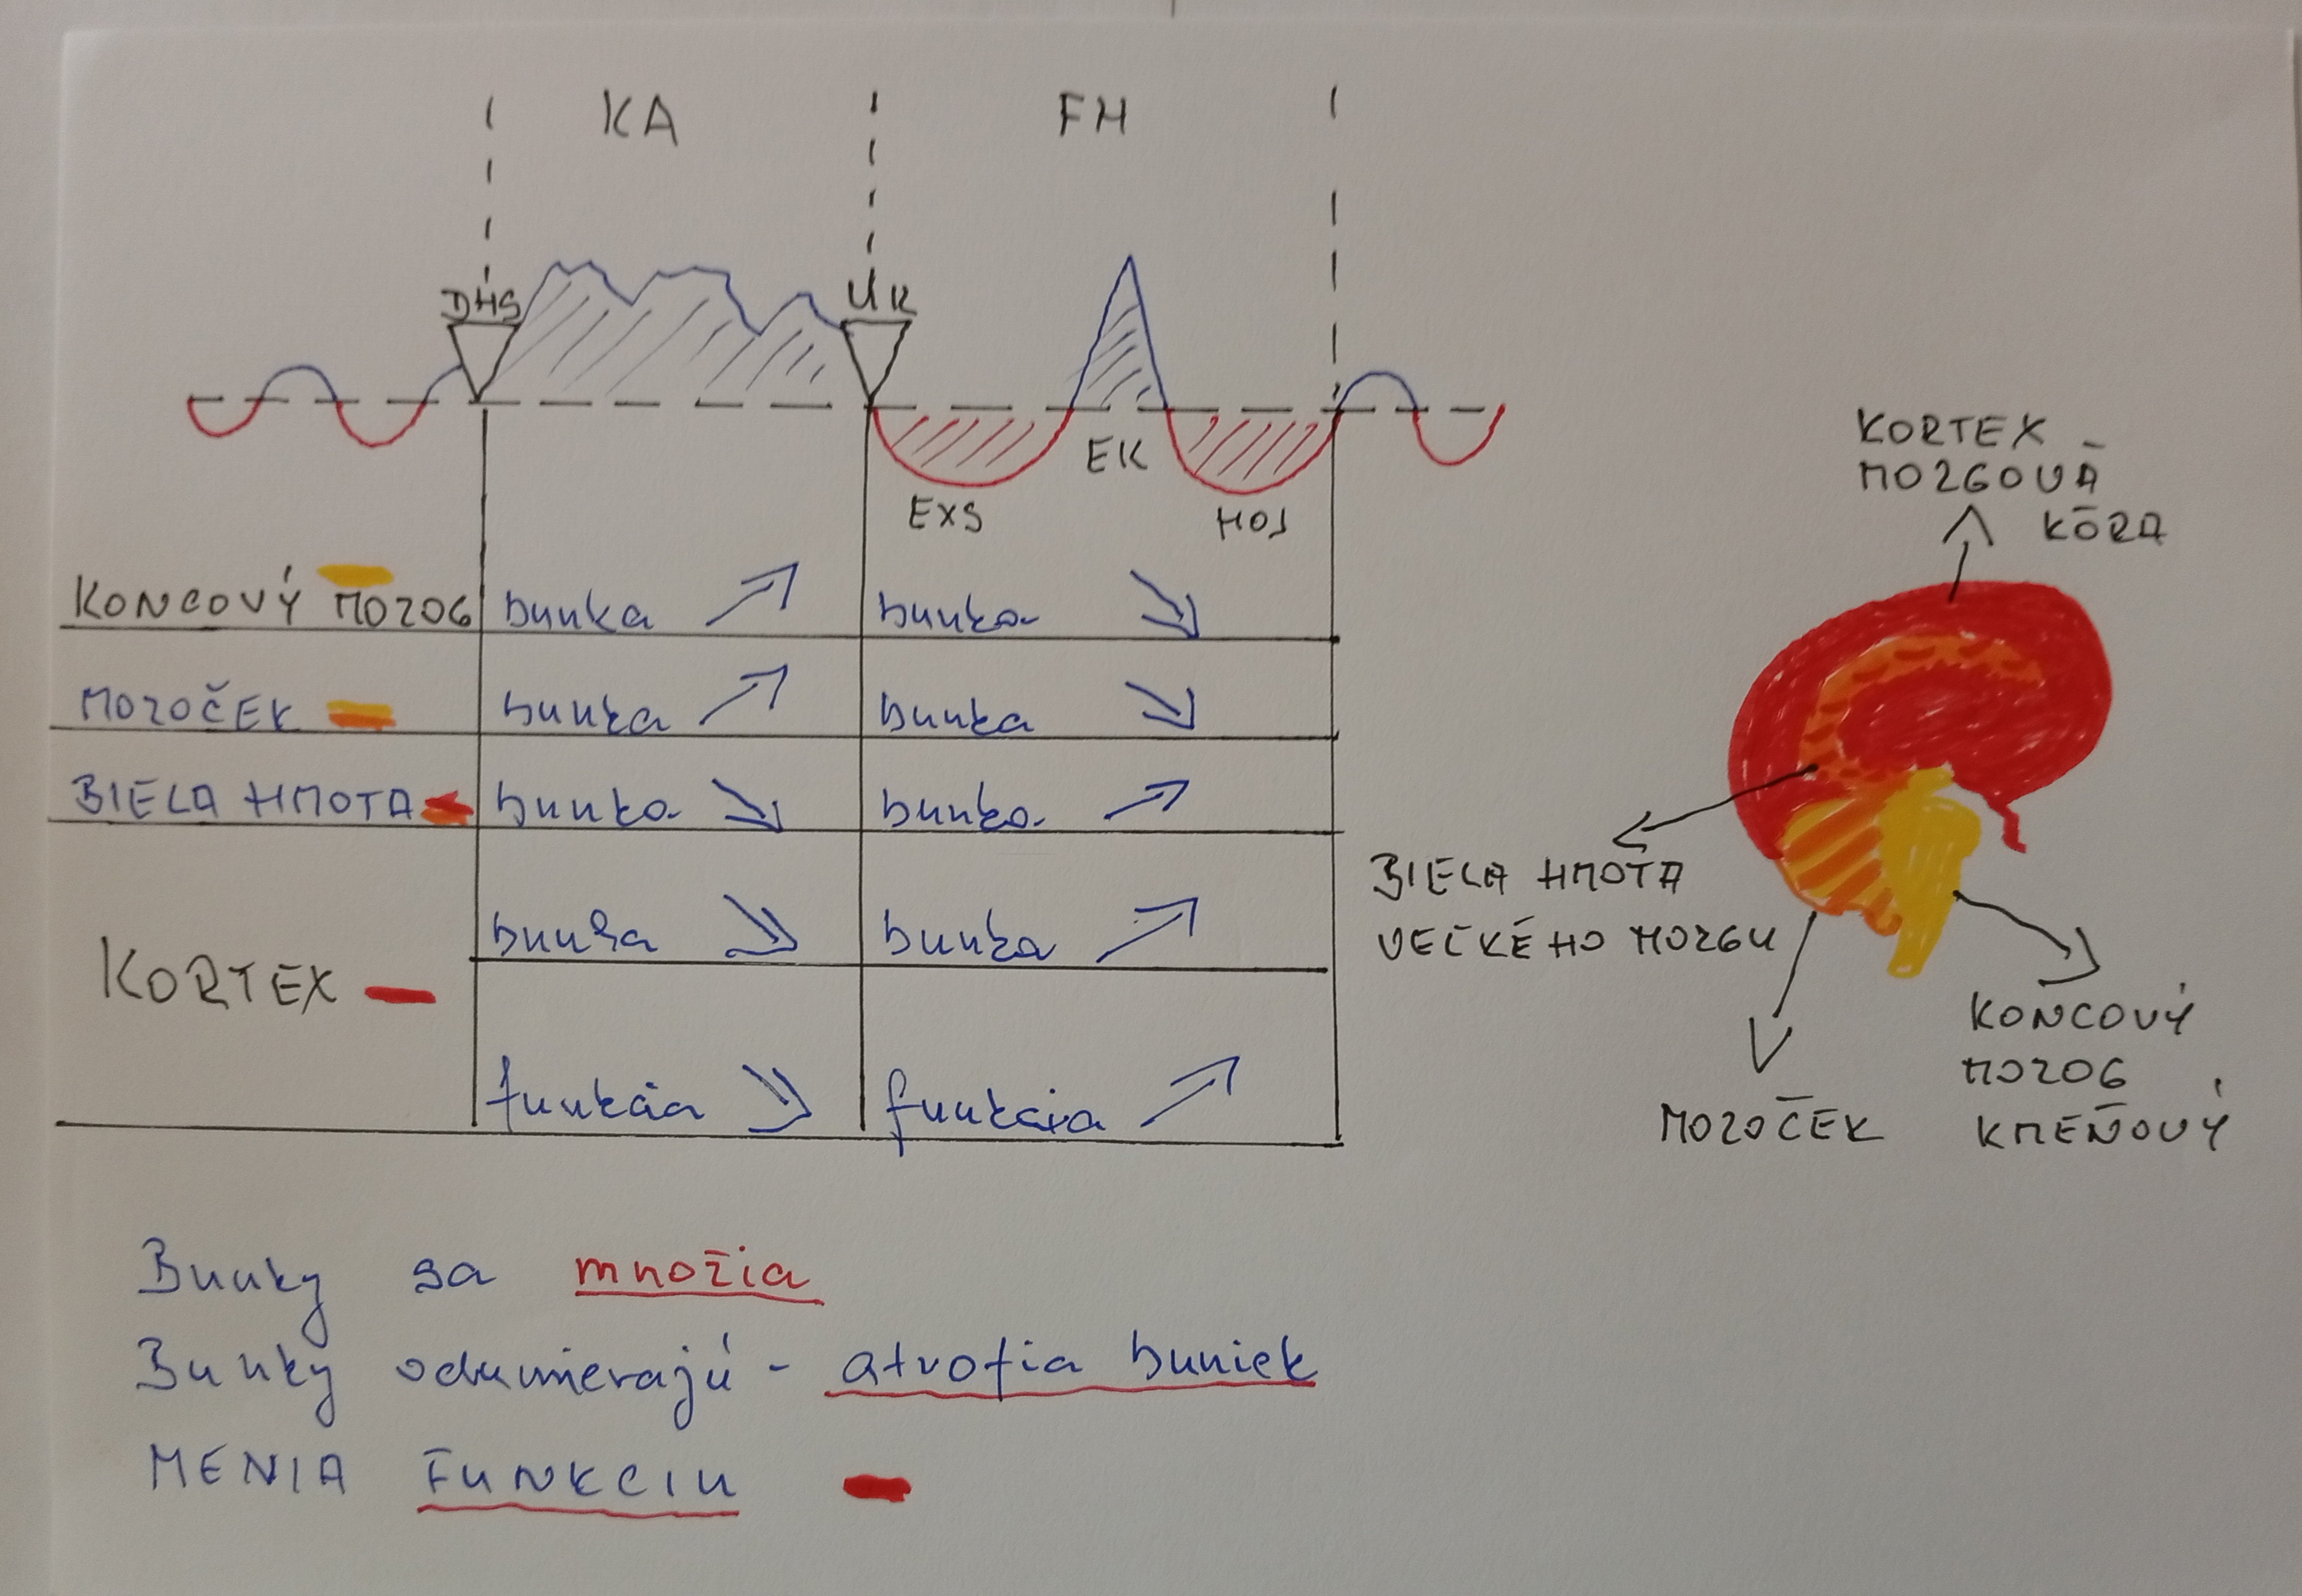 KA
FH
DHS
UK
EXS
EK
HOJ
KONCOVÝ MOZOG
bunka
bunka
MOZOČEK
bunka
bunka
BIELA HMOTA
bunka
bunka
KORTEX
bunka
bunka
funkcia
funkcia
KORTEX -
MOZGOVÁ
KÔRA
BIELA HMOTA
VEĽKÉHO MOZGU
MOZOČEK
KONCOVÝ
MOZOG
KMEŇOVÝ
Bunky sa množia
Bunky odumierajú - atrofia buniek
MENIA FUNKCIU